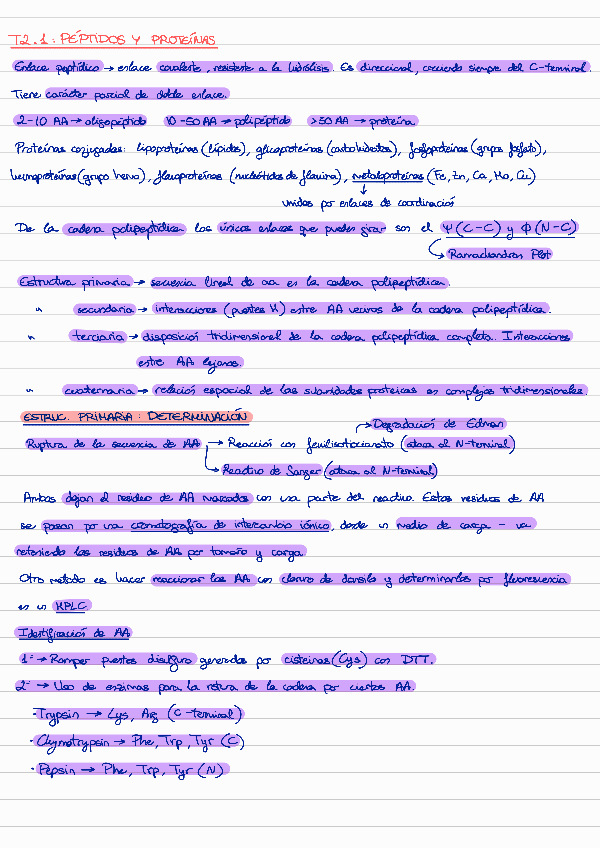 T2.1: PÉPTIDOS Y PROTEÍNAS
Enlace peptídico → enlace covalente, resistente a la hidrólisis. Es direccional, creciendo siempre del C-terminal.
Tiene carácter parcial de doble enlace.
2-10 AA → oligopéptido 10-50 AA → polipéptido >50 AA → proteína
Proteínas conjugadas: lipoproteínas (lípidos), glucoproteínas (carbohidratos), fosfoproteínas (grupo fosfato),
hemoproteínas (grupo hemo), flavoproteínas (nucleótidos de flavina), metaloproteínas (Fe, Zn, Ca, Mo, Cu)
↓
unidos por enlaces de coordinación
De la cadena polipeptídica los únicos enlaces que pueden girar son el Ψ (C-C) y Φ (N-C)
→ Ramachandran Plot
Estructura primaria → secuencia lineal de aa en la cadena polipeptídica.
" secundaria → interacciones (puentes H) entre AA vecinos de la cadena polipeptídica.
" terciaria → disposición tridimensional de la cadena polipeptídica completa. Interacciones
entre AA lejanos.
" cuaternaria → relación espacial de las subunidades proteicas en complejos tridimensionales.
ESTRUC. PRIMARIA: DETERMINACIÓN
→ Degradación de Edman
Ruptura de la secuencia de AA → Reacción con fenilisotiocianato (ataca al N-terminal)
→ Reactivo de Sanger (ataca al N-terminal)
Ambos dejan el residuo de AA marcado con una parte del reactivo. Estos residuos de AA
se pasan por una cromatografía de intercambio iónico, donde un medio de carga - va
reteniendo los residuos de AA por tamaño y carga.
Otro método es hacer reaccionar los AA con cloruro de dansilo y determinarlos por fluorescencia
en un HPLC
Identificación de AA
1º → Romper puentes disulfuro generados por cisteínas (Cys) con DTT.
2º → Uso de enzimas para la rotura de la cadena por ciertos AA.
· Trypsin → Lys, Arg (C-terminal)
· Chymotrypsin → Phe, Trp, Tyr (C)
· Pepsin → Phe, Trp, Tyr (N)